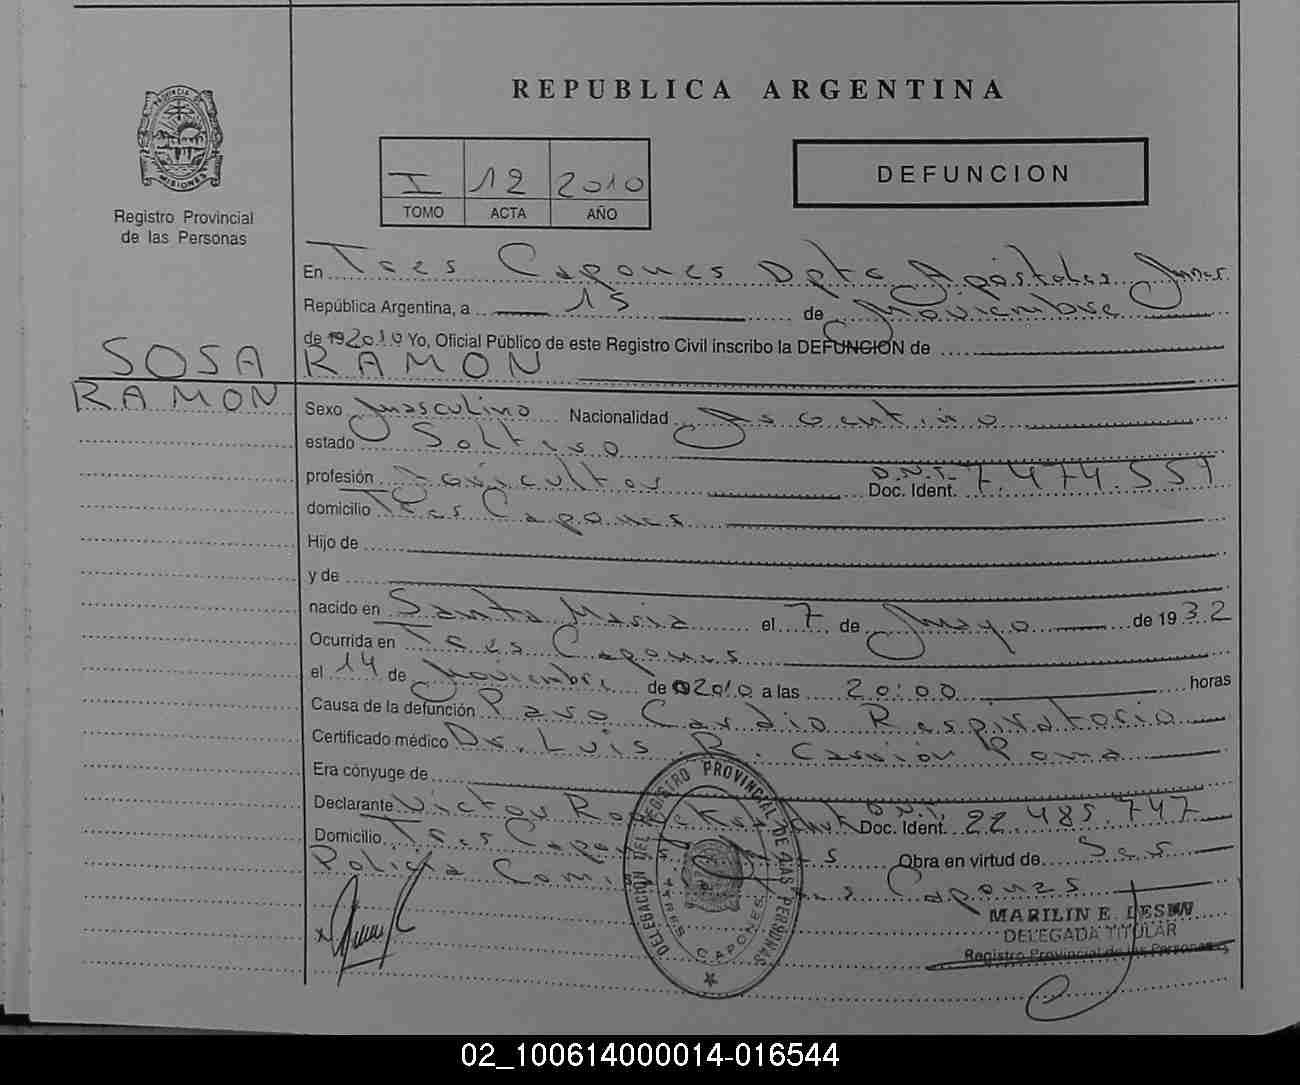 REPUBLICA ARGENTINA
PROVINCIA DE MISIONES
Registro Provincial
de las Personas
I 12 2010
TOMO ACTA AÑO
DEFUNCION
En Tres Capones Dpto Apóstoles Mnes.
República Argentina, a 15 de Noviembre
de 192010 Yo, Oficial Público de este Registro Civil inscribo la DEFUNCION de
SOSA RAMON
RAMON
Sexo Masculino Nacionalidad Argentino
estado Soltero
profesión D.N.I. 7.474.551
Doc. Ident.
domicilio Tres Capones
Hijo de
y de
nacido en Santa Maria el 7 de Mayo de 1932
Ocurrida en Tres Capones
el 14 de Noviembre de 2010 a las 20:00 horas
Causa de la defunción Paro Cardio Respiratorio
Certificado médico Dr. Luis R. Carrión Poma
Era cónyuge de
Declarante Victor D.N.I. 22.485.747
Doc. Ident.
Domicilio Tres Capones Obra en virtud de Ser
Policia Capones
DELEGACION DEL REGISTRO PROVINCIAL DE LAS PERSONAS
TRES CAPONES
MARILIN E. LESIW
DELEGADA TITULAR
Registro Provincial de las Personas
02_100614000014-016544